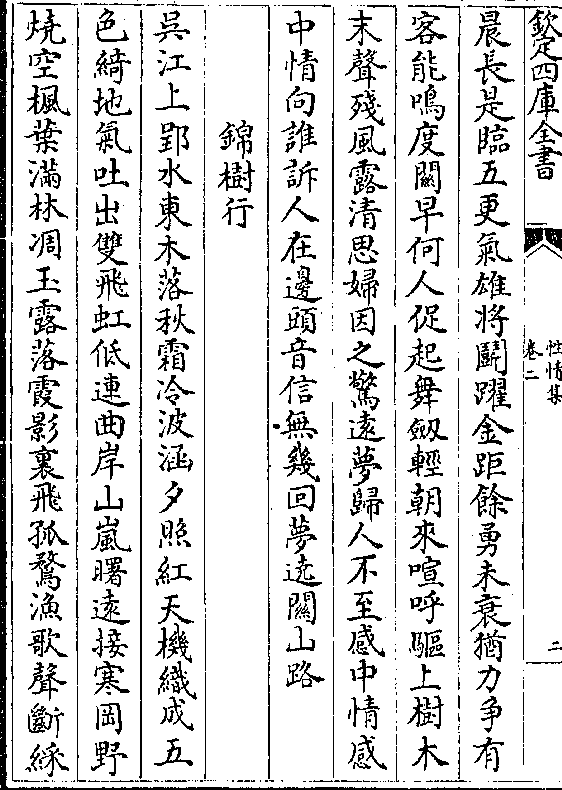 欽定四庫全書
性情集
卷二
二
晨長是臨五更氣雄將鬭躍金距餘勇未衰猶力争有
客能鳴度關早何人促起舞劔輕朝來喧呼驅上樹木
末聲殘風露清思婦因之驚遠夢歸人不至感中情感
中情向誰訴人在邊頭音信無幾回夢遶關山路
錦樹行
吳江上郢水東木落秋霜冷波涵夕照紅天機織成五
色綺地氣吐出雙飛虹低連曲岸山嵐曙遠接寒岡野
燒空楓葉滿林凋玉露落霞影裏飛孤鶩漁歌聲斷綵